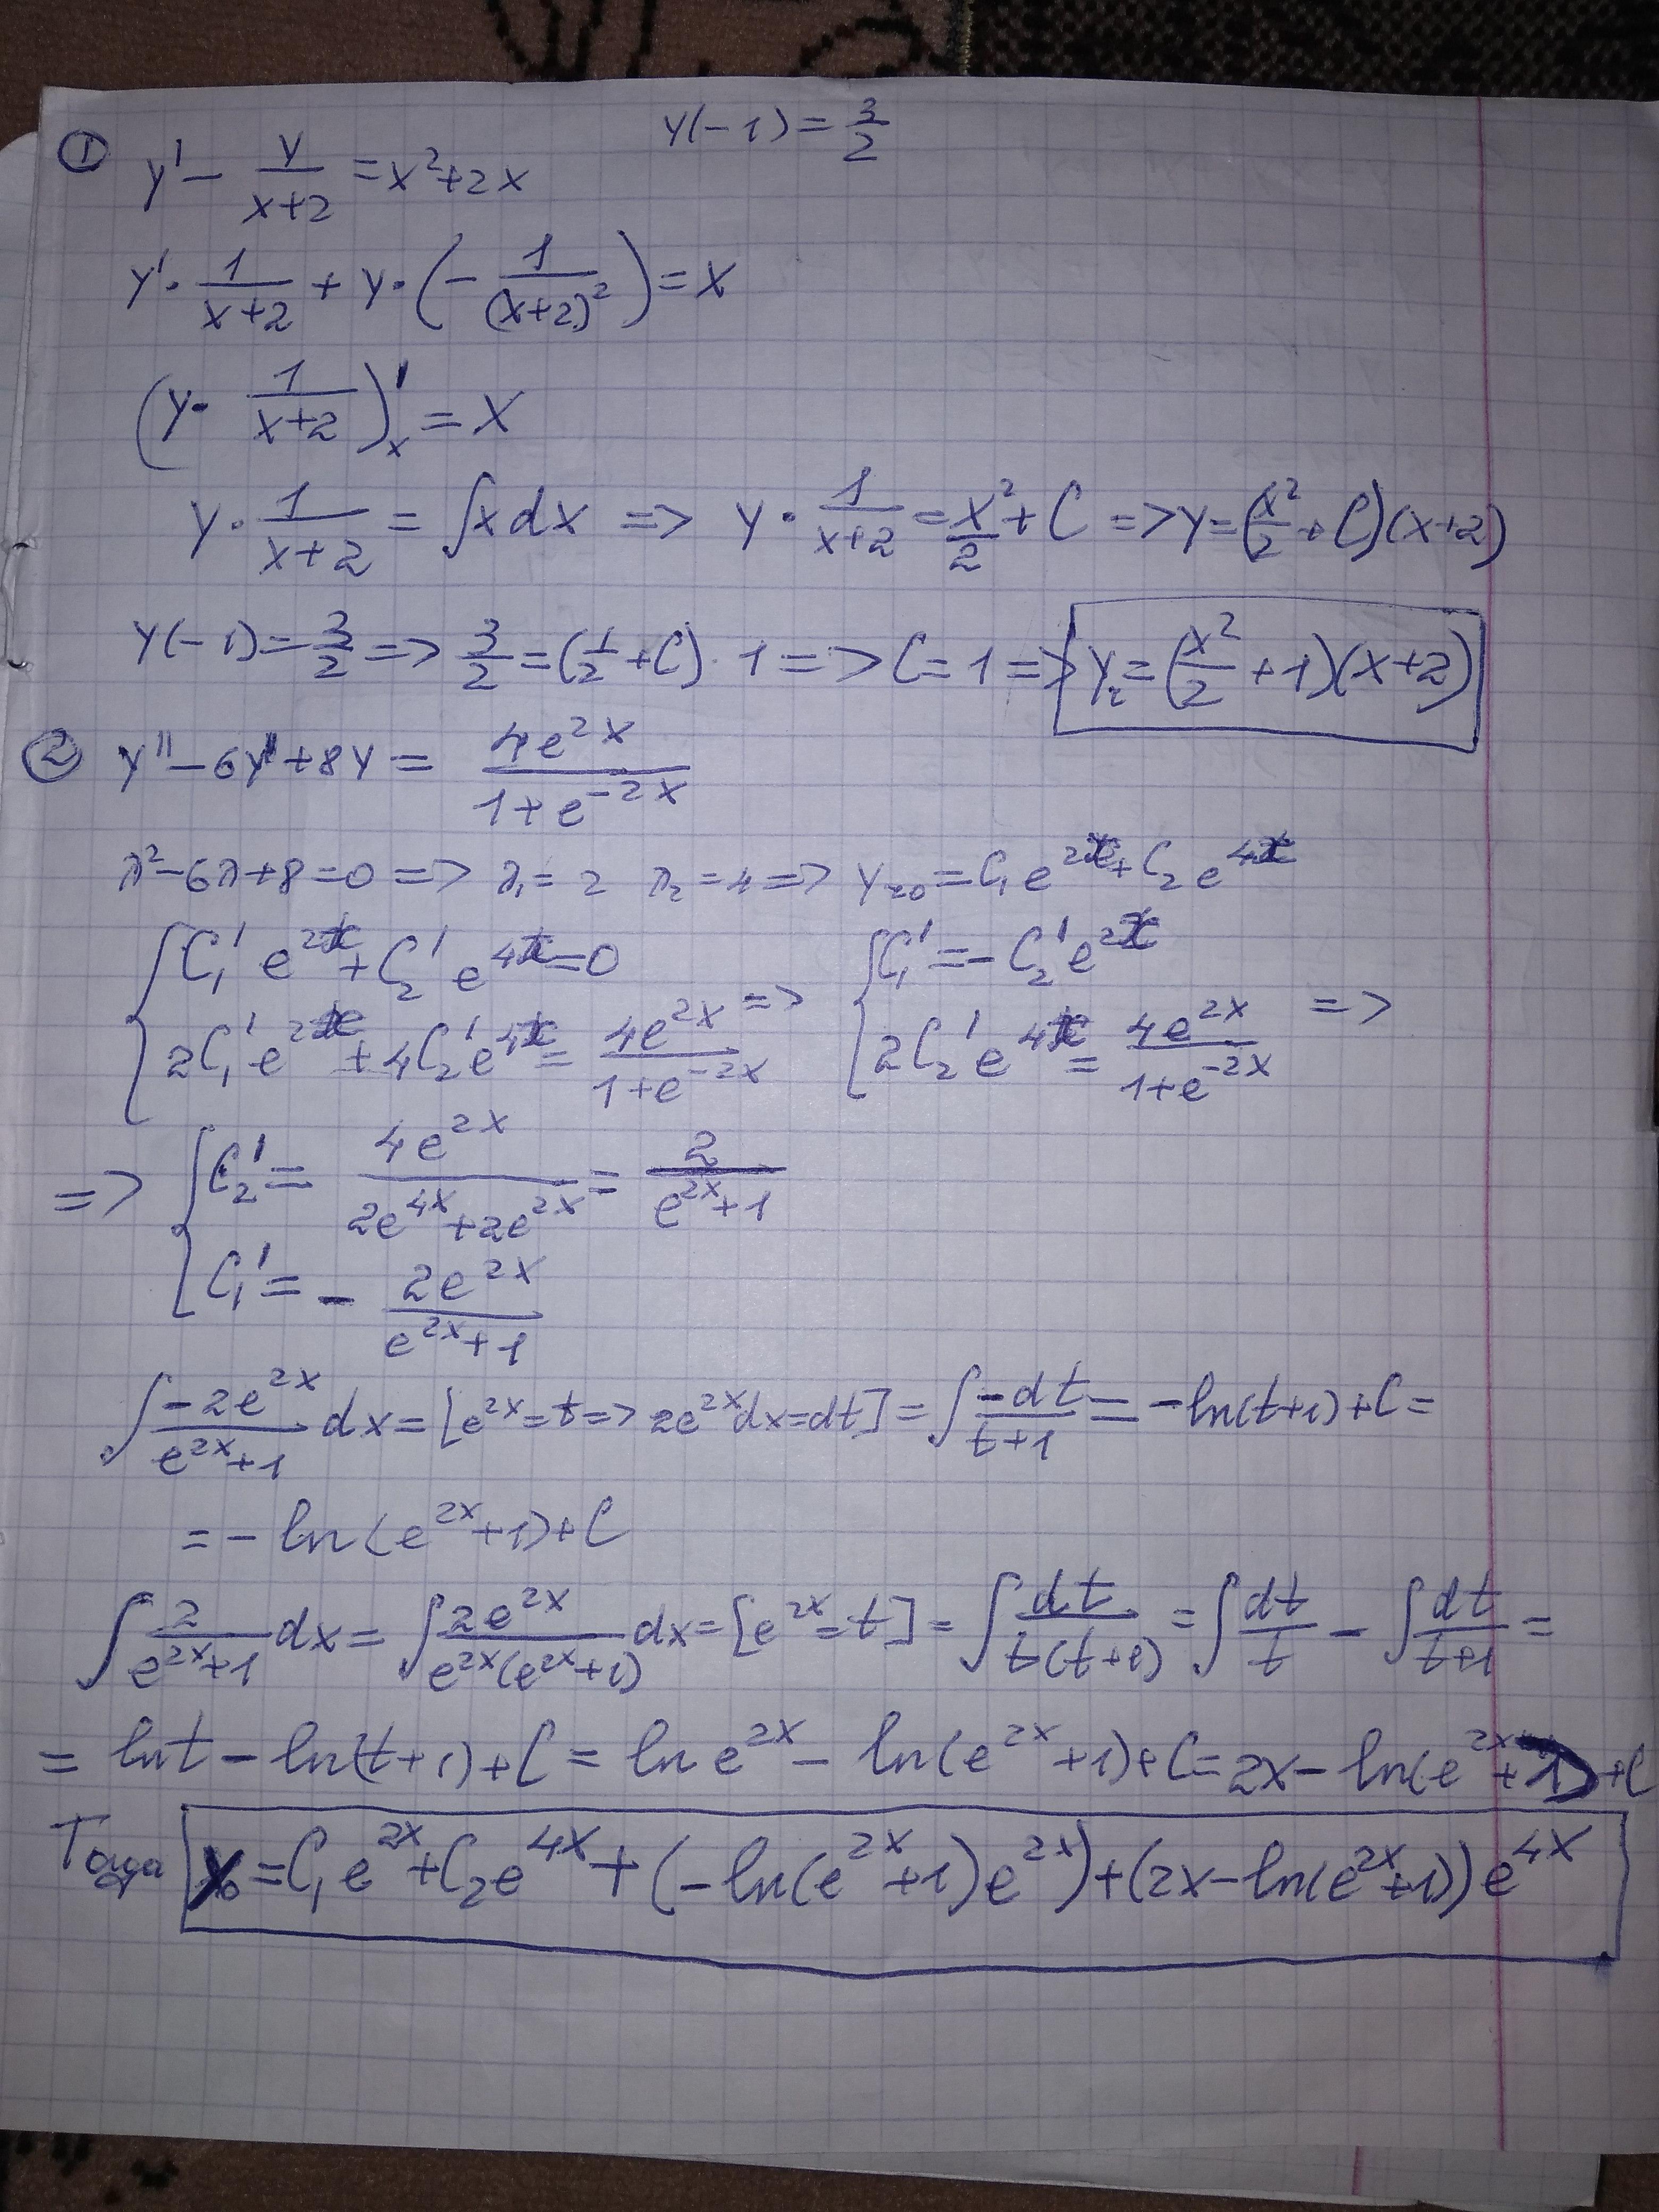 ① y' - y/(x+2) = x²+2x    y(-1) = 3/2
y' · 1/(x+2) + y · (- 1/(x+2)²) = x
(y · 1/(x+2))'ₓ = x
y · 1/(x+2) = ∫x dx => y · 1/(x+2) = x²/2 + C => y = (x²/2 + C)(x+2)
y(-1) = 3/2 => 3/2 = (1/2 + C) · 1 => C = 1 => y₂ = (x²/2 + 1)(x+2)
② y'' - 6y' + 8y = 4e^(2x)/(1+e^(-2x))
λ² - 6λ + 8 = 0 => λ₁ = 2 λ₂ = 4 => y₂₀ = C₁e^(2x) + C₂e^(4x)
{ C₁'e^(2x) + C₂'e^(4x) = 0 ; 2C₁'e^(2x) + 4C₂'e^(4x) = 4e^(2x)/(1+e^(-2x)) => { C₁' = -C₂'e^(2x) ; 2C₂'e^(4x) = 4e^(2x)/(1+e^(-2x)) =>
=> { C₂' = 4e^(2x)/(2e^(4x)+2e^(2x)) = 2/(e^(2x)+1)
C₁' = - 2e^(2x)/(e^(2x)+1)
∫ -2e^(2x)/(e^(2x)+1) dx = [e^(2x) = t => 2e^(2x)dx = dt] = ∫ -dt/(t+1) = -ln(t+1)+C =
= -ln(e^(2x)+1)+C
∫ 2/(e^(2x)+1) dx = ∫ 2e^(2x)/(e^(2x)(e^(2x)+1)) dx = [e^(2x) = t] = ∫ dt/(t(t+1)) = ∫ dt/t - ∫ dt/(t+1) =
= ln t - ln(t+1)+C = ln e^(2x) - ln(e^(2x)+1)+C = 2x - ln(e^(2x)+1)+C
Тогда y₀ = C₁e^(2x) + C₂e^(4x) + (-ln(e^(2x)+1)e^(2x)) + (2x - ln(e^(2x)+1))e^(4x)